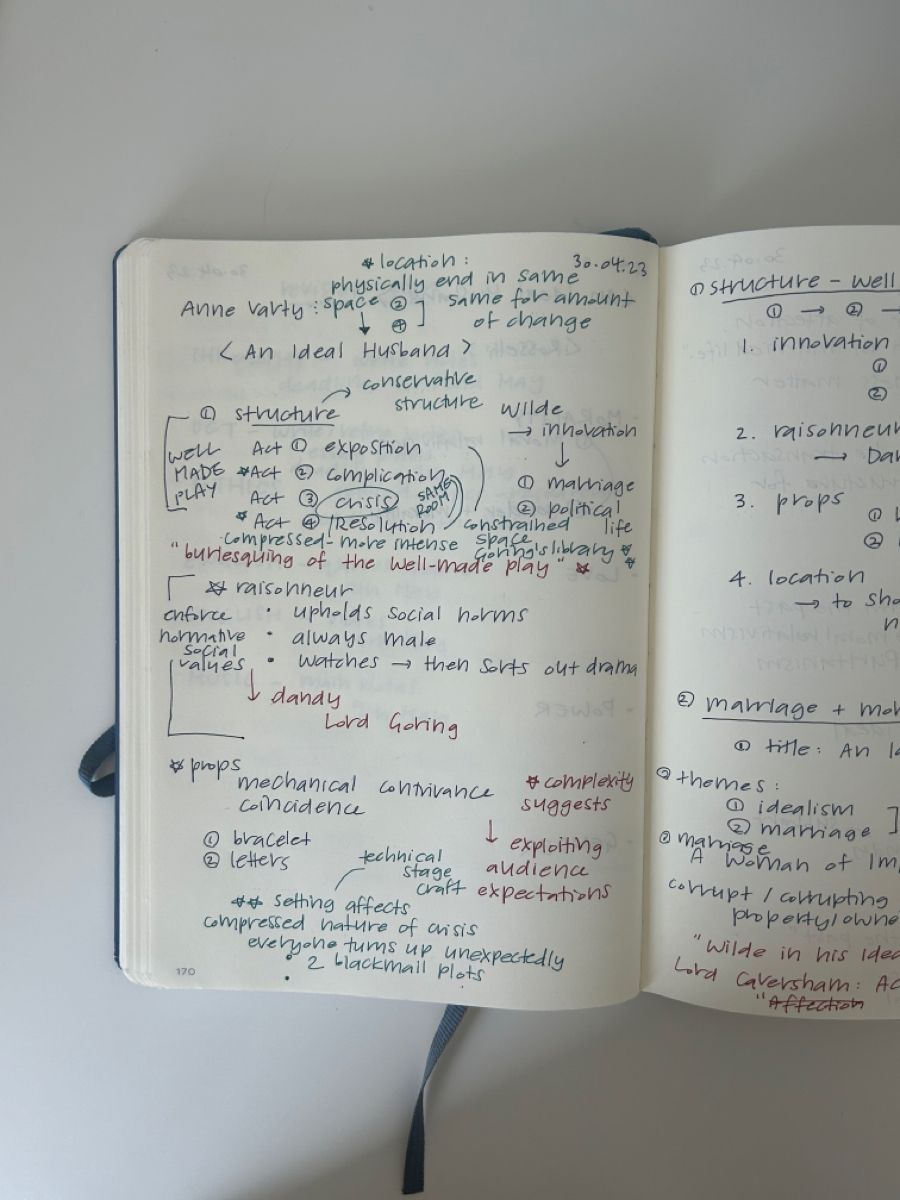 * location :
30.04.23
physically end in same
Anne Varty : space ② ] same for amount
↓ ④ of change
< An Ideal Husband >
→ conservative
structure
① structure
Wilde
→ innovation
↓
WELL
MADE
PLAY
Act ① expostion
*Act ② complication
Act ③ crisis
* Act ④ /Resolution
SAME
ROOM
① marriage
② political
life
constrained
space
Goring's library *
compressed - more intense
"burlesquing of the well-made play" *
* raisonneur
enforce
normative
social
values
• upholds social norms
• always male
• watches → then sorts out drama
↓ dandy
Lord Goring
* props
mechanical contrivance
coincidence
① bracelet
② letters
* complexity
suggests
↓ exploiting
audience
expectations
technical
stage
craft
** setting affects
compressed nature of crisis
everyone turns up unexpectedly
• 2 blackmail plots
•
170
① structure - well
① → ② →
1. innovation
①
②
2. raisonneur
→ Dan
3. props
①
②
4. location
→ to sho
② marriage + mor
① title : An
② themes :
① idealism
② marriage ]
② marriage
A Woman of Imp
corrupt / corrupting
property/owne
"Wilde in his idea
Lord Caversham: Ac
"Affection